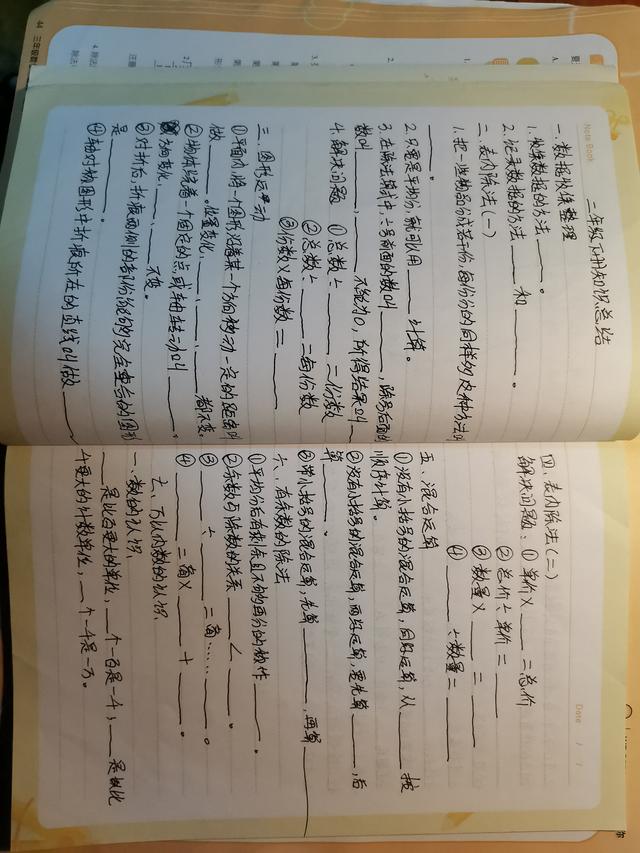 Note Book
二年级下册知识总结
一.数据收集整理
1.收集数据的方法______。
2.记录数据的方法______和______。
二.表内除法(一)
1.把一些物品分成若干份,每份分的同样多,这种分法叫
______。
2.只要是平均分,就可以用______计算。
3.在除法算式中,除号前面的数叫______,除号后面的
数叫______,______不能为0,所得结果叫______
4.解决问题 ①总数÷______=份数
②总数÷______=每份数
③份数×每份数=______
三.图形运动
①平面内,将一个图形沿着某一个方向移动一定的距离叫
做______。位置变化,______、______、______都不变。
②物体绕着一个固定的点或轴转动叫______,
方向变化,______、______不变。
③对折后,折痕两侧的部分能够完全重合的图形
是______。
④轴对称图形中折痕所在的直线叫做______
Date / /
四.表内除法(二)
解决问题:①单价×______=总价
②总价÷单价=______
③数量×______=______
④______÷数量=______
五.混合运算
①没有小括号的混合运算,同级运算,从______按
顺序计算。
②没有小括号的混合运算,两级运算,要先算______,后
算______。
③带小括号的混合运算,先算______,再算______
六、有余数的除法
①平均分后有剩余且不够再分的数作______。
②余数与除数的关系______<______。
③______÷______=商……______。
④______=商×______+______。
七、万以内数的认识
一、数的认识
______是比百更大的单位,______个一百是一千,______是比
千更大的计数单位,______个一千是一万。
44
三年级数